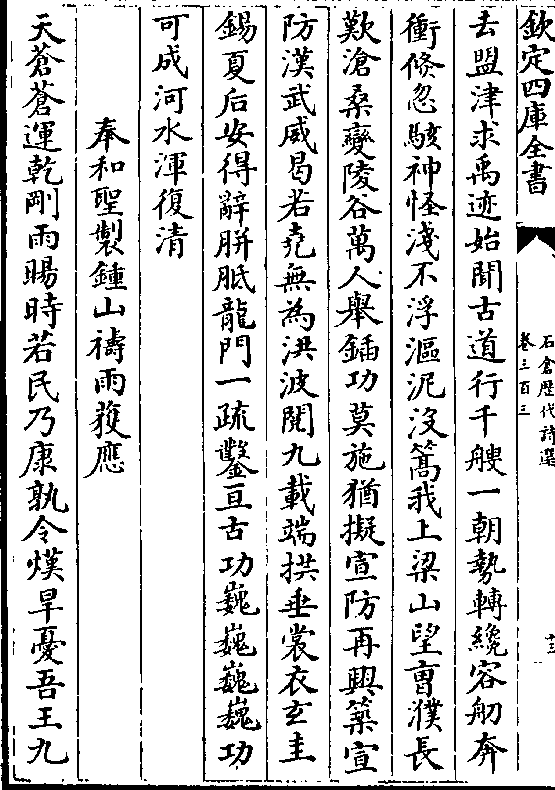 欽定四庫全書
石倉歴代詩選
卷三百三
十三
去盟津求禹迹始聞古道行千艘一朝勢轉纔容舠奔
衝倐忽駭神怪淺不浮漚泥沒篙我上梁山望曹濮長
歎滄桑變陵谷萬人舉鍤功莫施猶擬宣防再興築宣
防漢武威曷若堯無為洪波閱九載端拱垂裳衣玄圭
錫夏后安得辭胼胝龍門一疏鑿亘古功巍巍巍巍功
可成河水渾復清
奉和聖製鍾山禱雨獲應
天蒼蒼運乾剛雨暘時若民乃康孰令熯旱憂吾王九